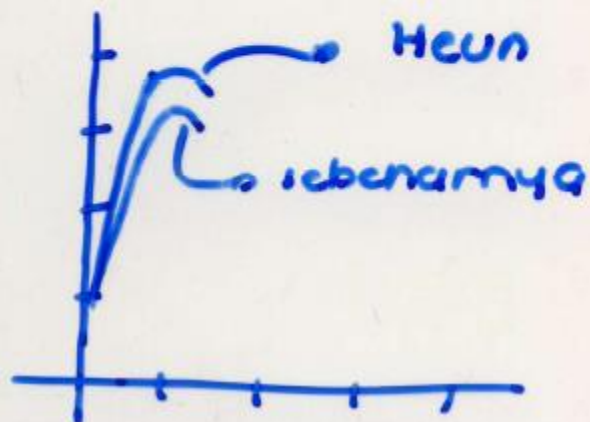 Heun
sebenarnya